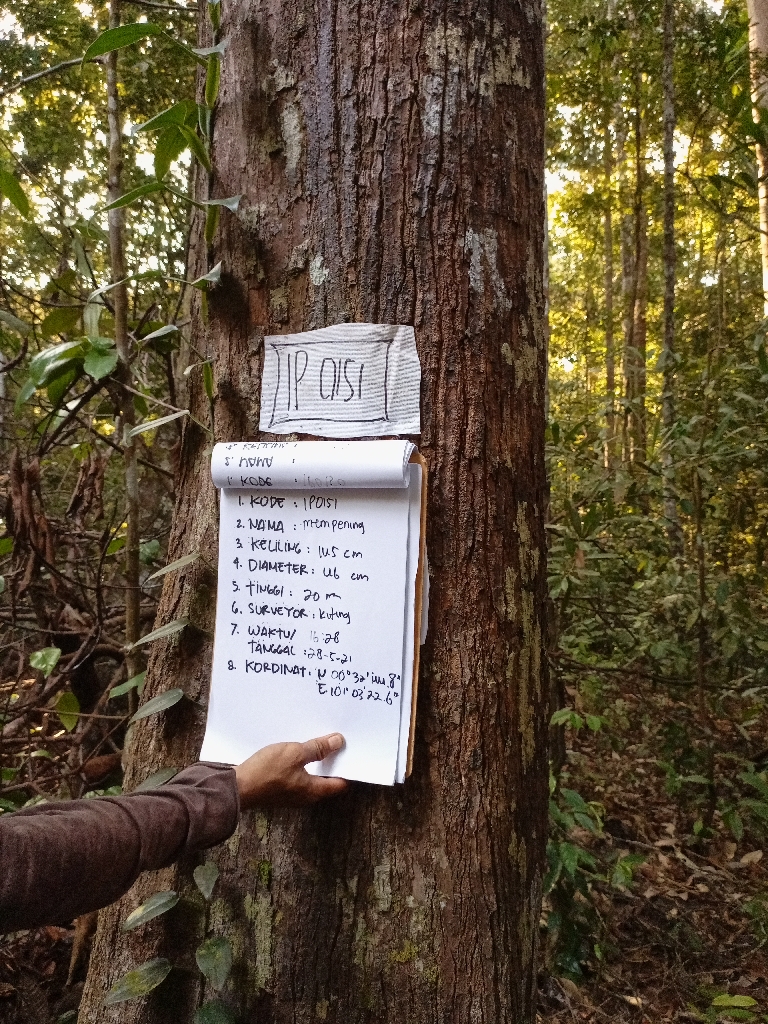 IP 0151
5. NAMA :
1. KODE :
1. KODE : IP0151
2. NAMA : Mempening
3. KELILING : 145 cm
4. DIAMETER : 46 cm
5. TINGGI : 20 m
6. SURVEYOR : Kuting
7. WAKTU/ 16:28
TANGGAL : 28-5-21
8. KORDINAT : N 00° 32' 44.8"
E 101° 03' 22.6"